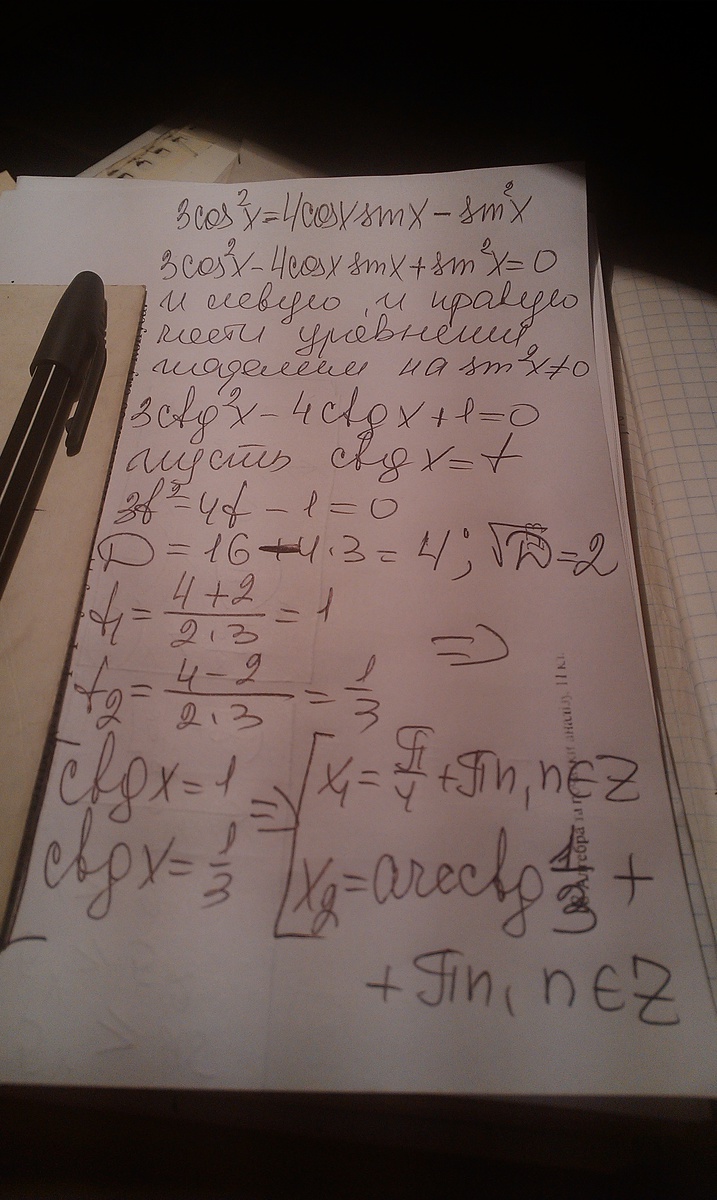 3cos²x=4cosx sinx – sin²x
3cos²x–4cosx sinx+sin²x=0
и левую и правую
части уровнения
поделим на sin²x≠0
3ctg²x – 4ctgx+1=0
пусть ctgx=t
3t²=4t – 1=0
D=16–4·3=4; √D=2
t₁=(4+2)/(2·3)=1
=>
t₂=(4–2)/(2·3)=1/3
ctgx=1
=> [x₁=π/4+πn, n∈Z
ctgx=1/3
x₂=arcctg 1/3 +
+ πn, n∈Z
Алгебра
аналізу. 11 кл.